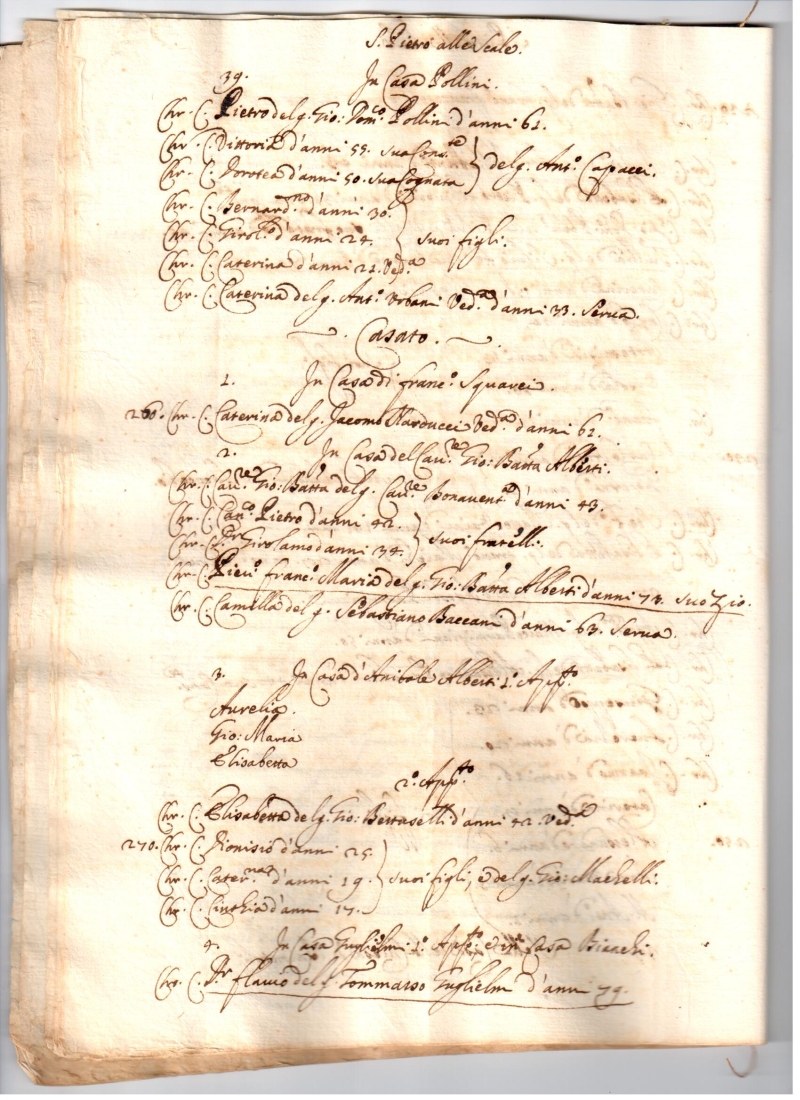 S. Pietro alle Scale.
39. In Casa Pollini.
Chr. C. Pietro del q. Gio: Dom.co Pollini d'anni 61.
Chr. C. Vittoria d'anni 55. sua Cons.te
Chr. C. Dorotea d'anni 50. sua Cognata } del q. Ant.o Capacci.
Chr. C. Bernard.no d'anni 30.
Chr. C. Girol.o d'anni 24. } suoi figli.
Chr. C. Caterina d'anni 21. Ved.a
Chr. C. Caterina del q. Ant.o Urbani Ved.a d'anni 33. Serva.
Casato.
1. In Casa di Franc.o Squarci.
260. Chr. C. Caterina del q. Jacomo Narducci Ved.a d'anni 61.
2. In Casa del Cav.re Gio: Batta Alberti.
Chr. C. Cav.re Gio: Batta del q. Cav.re Bonavent.a d'anni 43.
Chr. C. Can.o Pietro d'anni 42.
Chr. C. Girolamo d'anni 34. } suoi fratelli.
Chr. C. Piev.o Franc.o Maria del q. Gio: Batta Alberti d'anni 73. suo Zio.
Chr. C. Camilla del q. Sebastiano Baccani d'anni 63. Serva.
3. In Casa d'Anibale Alberti 1.o App.to
Aurelia.
Gio: Maria
Elisabetta
2.o App.to
Chr. C. Elisabetta del q. Gio: Bettaselli d'anni 42. Ved.a
270. Chr. C. Dionisio d'anni 25.
Chr. C. Cater.na d'anni 19. } suoi figli, e del q. Gio: Machelli.
Chr. C. Cinthia d'anni 17.
4. In Casa Guglielmi 1.o App.to e in Casa Bianchi.
Chr. C. Flavio del q. Tommasso Guglielmi d'anni 79.